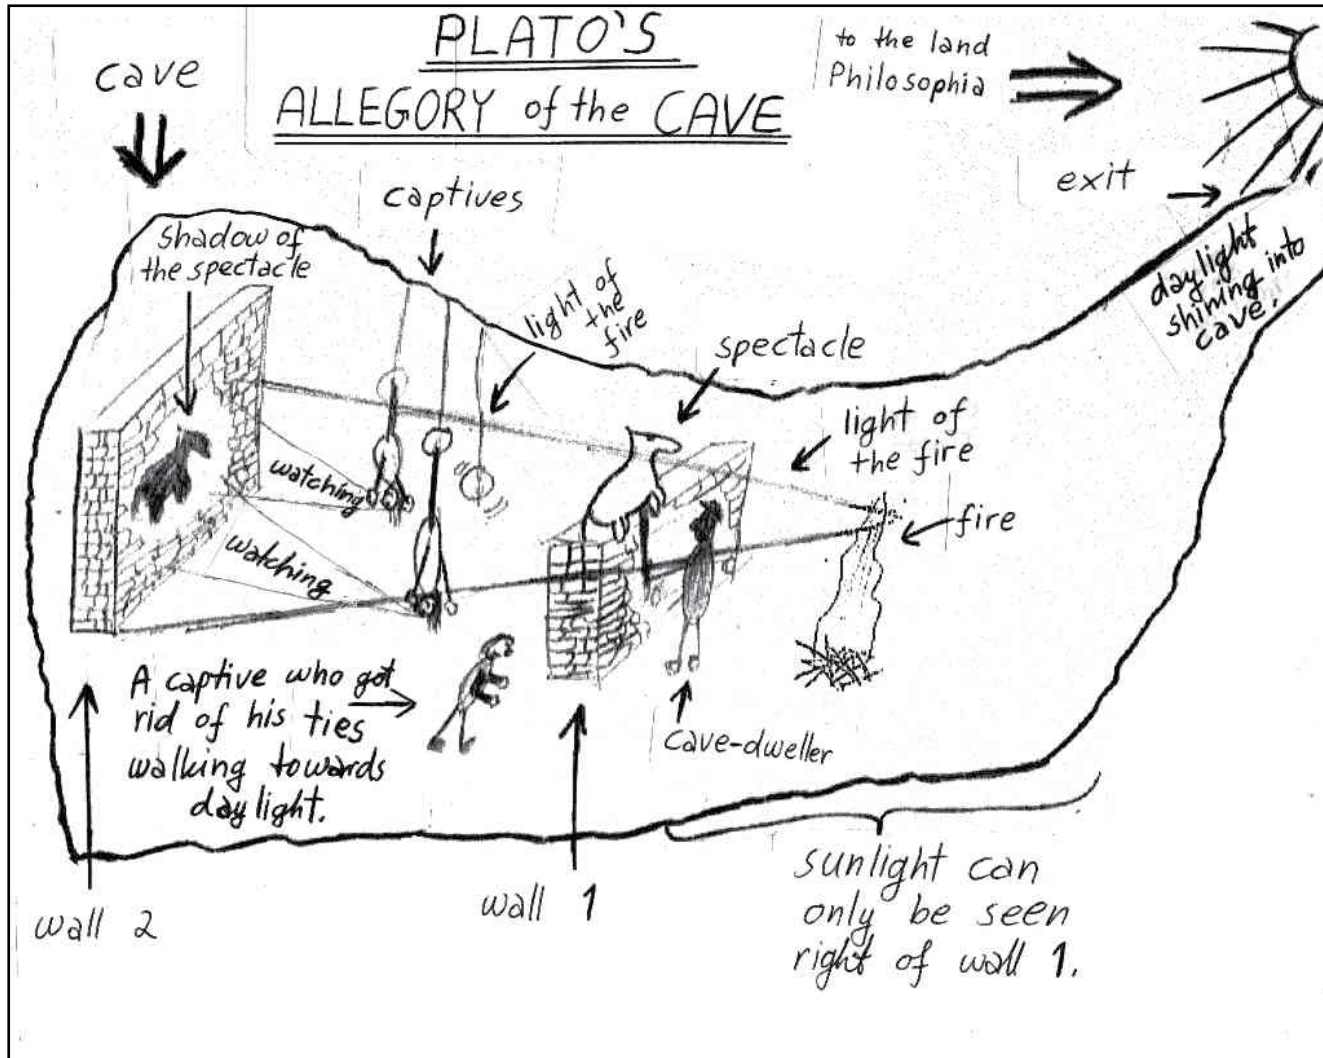 PLATO'S
ALLEGORY of the CAVE
to the land
Philosophia
cave
exit
captives
daylight
shining into
cave.
Shadow of
the spectacle
light of
the
fire
spectacle
light of
the fire
fire
watching
watching
A captive who got
rid of his ties
walking towards
daylight.
cave-dweller
wall 2
wall 1
sunlight can
only be seen
right of wall 1.